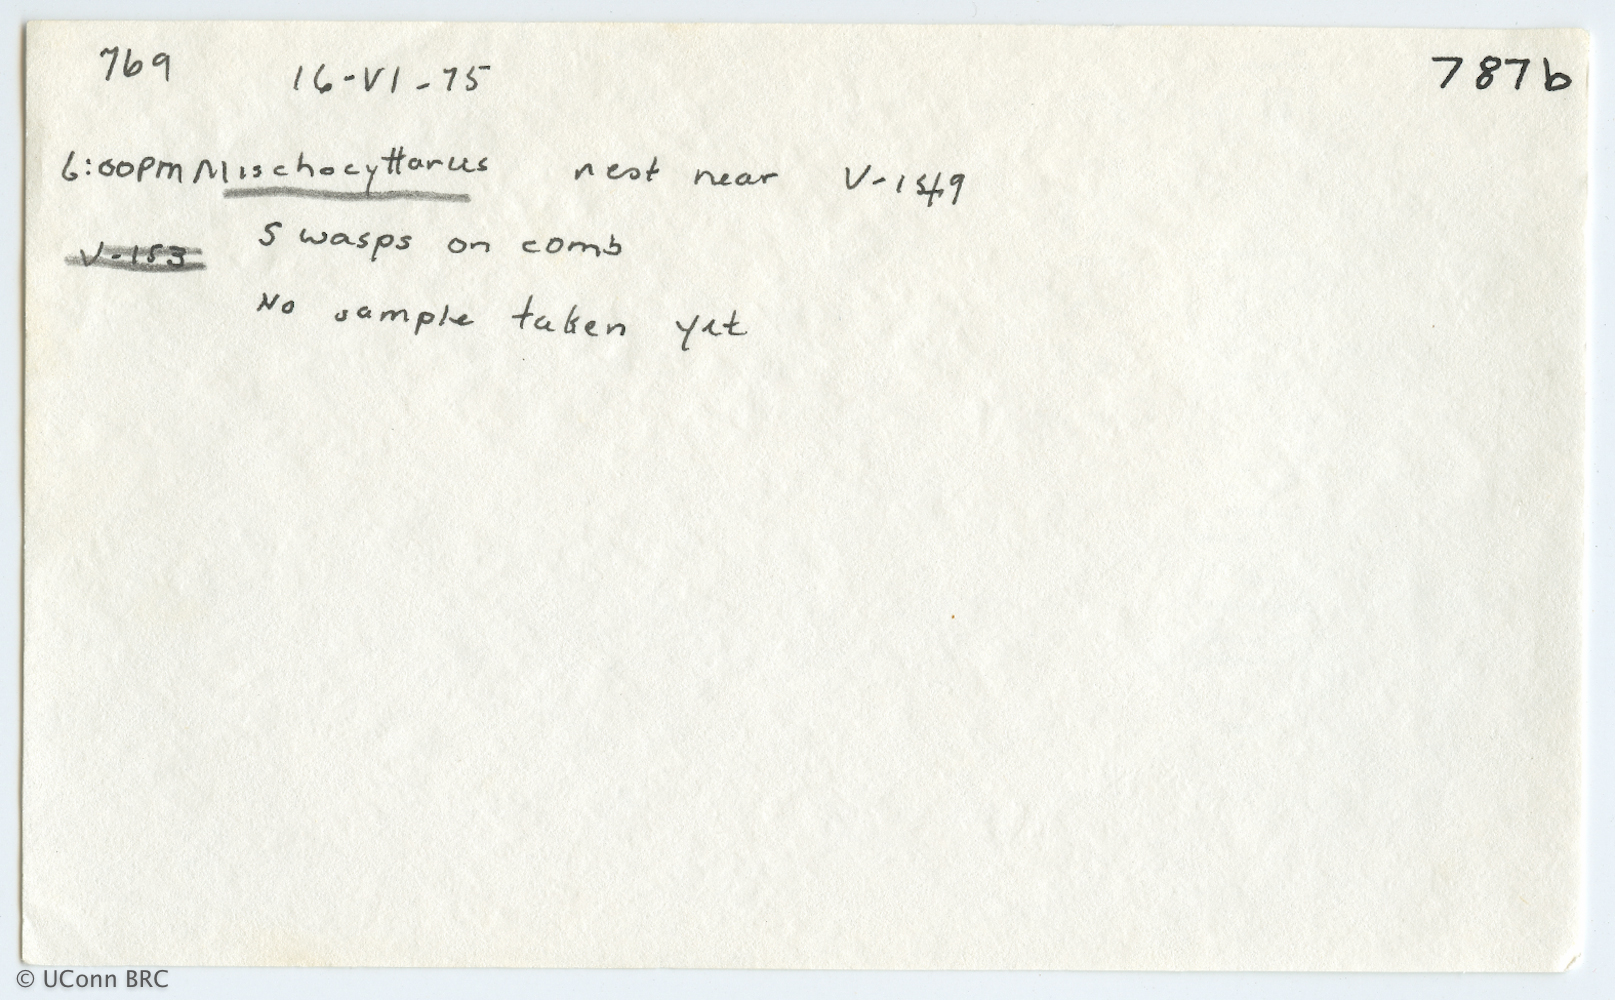 769 16-VI-75 787b
6:00pm Mischocyttarus nest near V-149
V-153 5 wasps on comb
No sample taken yet
© UConn BRC